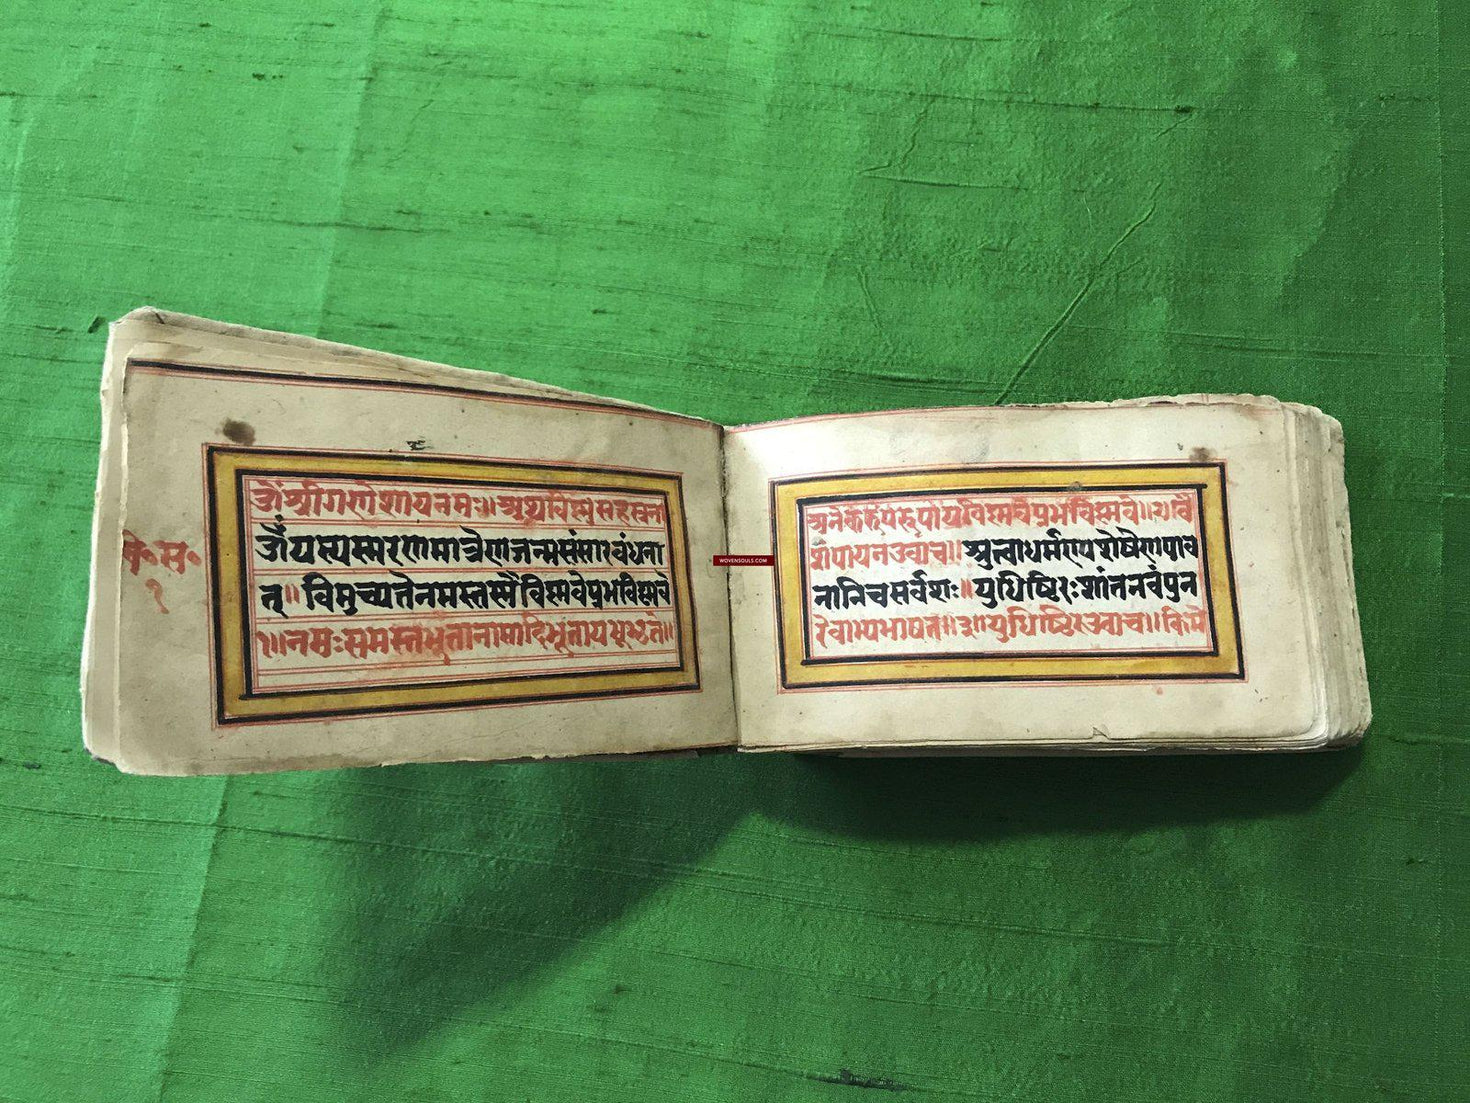 ॐश्रीगणेशायनमः॥अथविष्णुसहस्रना
ॐयस्यस्मरणमात्रेणजन्मसंसारबंधना
त्॥विमुच्यतेनमस्तस्मैविष्णवेप्रभविष्णवे
१॥नमःसमस्तभूतानामादिभूतायभूभृते॥
वि॰स॰
१
अनेकरूपरूपायविष्णवेप्रभविष्णवे॥२॥वै
शंपायनउवाच॥श्रुत्वाधर्मानशेषेणपाव
नानिचसर्वशः॥युधिष्ठिरःशांतनवंपुन
रेवाभ्यभाषत॥३॥युधिष्ठिरउवाच॥किमे
WOVENSOULS.COM